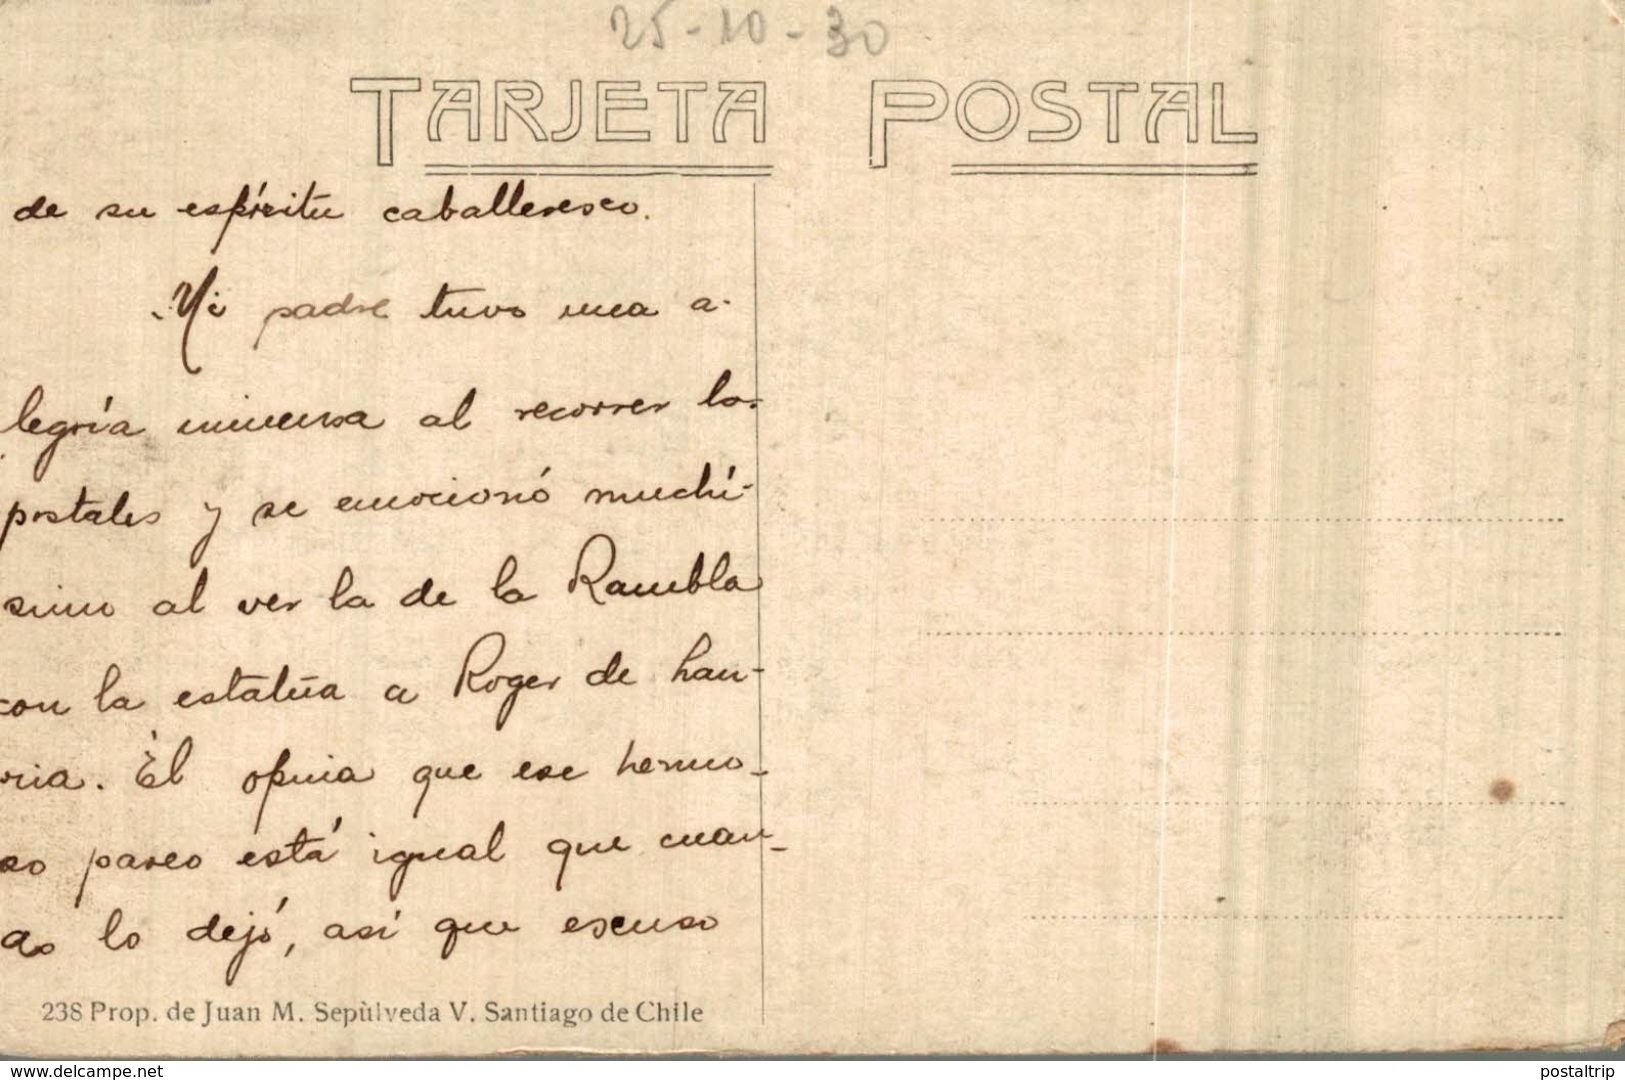 25-10-30
TARJETA POSTAL
de su espíritu caballeresco.
Mi padre tuvo una a-
legría inmensa al recorrer las
postales y se emocionó muchí-
simo al ver la de la Rambla
con la estatúa a Roger de Lau-
ria. Él opinia que ese hermo-
so paseo está igual que cuan-
do lo dejó, así que escuso
238 Prop. de Juan M. Sepùlveda V. Santiago de Chile
www.delcampe.net
postaltrip